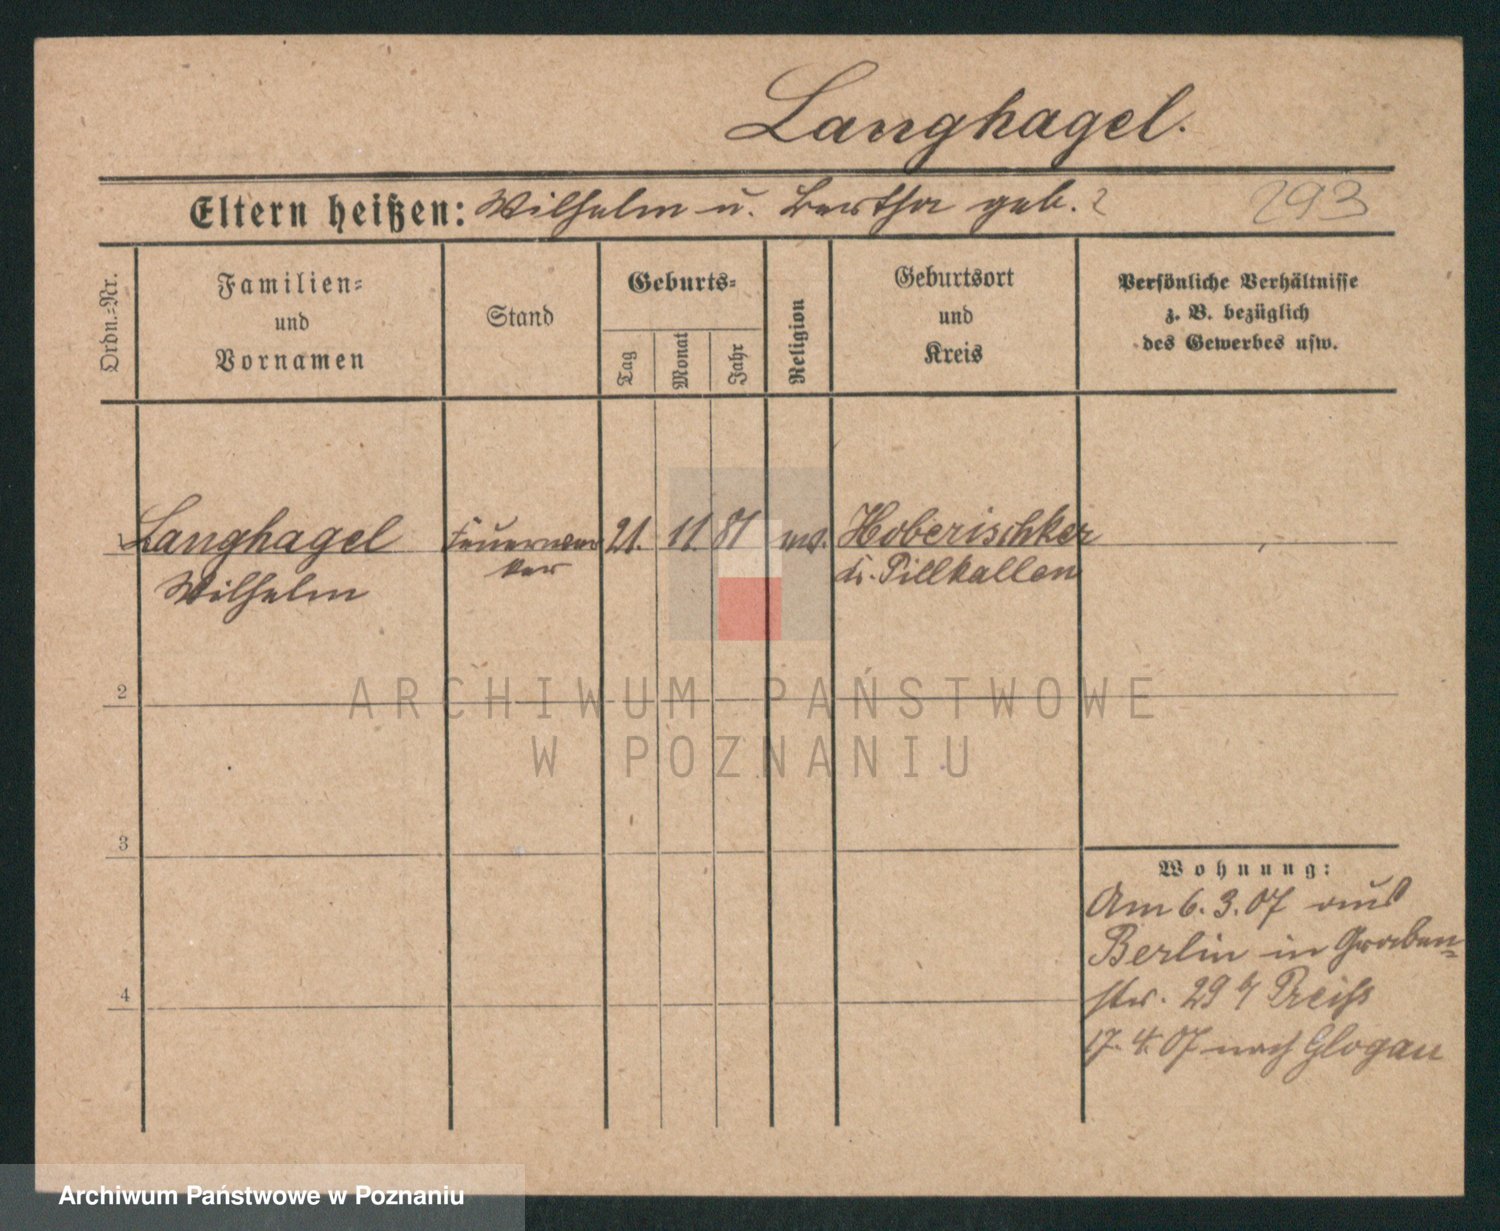 Langhagel.
Eltern heißen: Wilhelm u. Bertha geb. ?
293
Ordn.-Nr.
Familien-
und
Vornamen
Stand
Geburts-
Tag
Monat
Jahr
Religion
Geburtsort
und
Kreis
Persönliche Verhältnisse
z. B. bezüglich
des Gewerbes usw.
Langhagel
Wilhelm
Feuerwer
ker
21.
11.
81
ev.
Hoberischken
Kr. Pillkallen
ARCHIWUM PAŃSTWOWE
W POZNANIU
2
3
4
Wohnung:
Am 6.3.07 aus
Berlin in Graben-
str. 29 b/ Preiss
17.4.07 nach Glogau
Archiwum Państwowe w Poznaniu